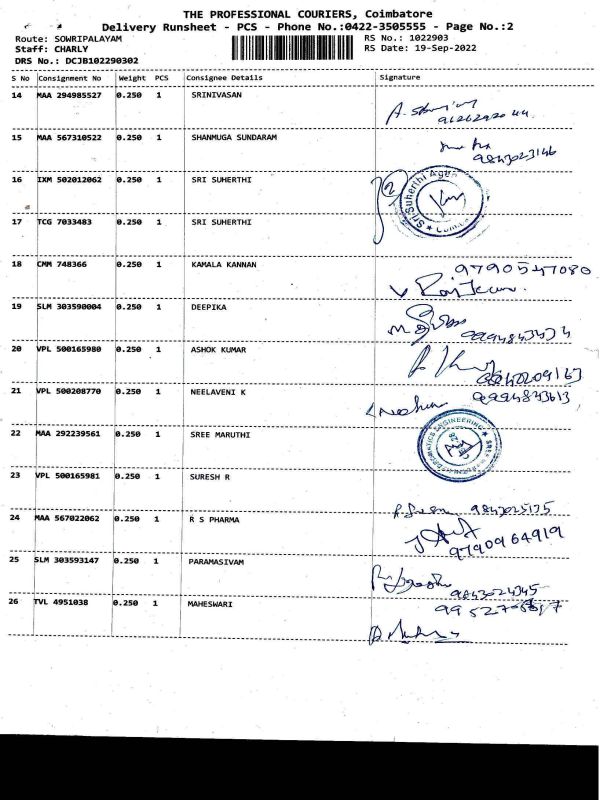 THE PROFESSIONAL COURIERS, Coimbatore
Delivery Runsheet - PCS - Phone No.:0422-3505555 - Page No.:2
Route: SOWRIPALAYAM RS No.: 1022903
Staff: CHARLY RS Date: 19-Sep-2022
DRS No.: DCJB102290302
S No Consignment No Weight PCS Consignee Details Signature
14 MAA 294985527 0.250 1 SRINIVASAN
15 MAA 567310522 0.250 1 SHANMUGA SUNDARAM
9843023146
16 IXM 502012062 0.250 1 SRI SUHERTHI
Sri Suherthi Agen
17 TCG 7033483 0.250 1 SRI SUHERTHI
18 CMM 748366 0.250 1 KAMALA KANNAN
9790547080
19 SLM 303590004 0.250 1 DEEPIKA
20 VPL 500165980 0.250 1 ASHOK KUMAR
21 VPL 500208770 0.250 1 NEELAVENI K
9994843613
22 MAA 292239561 0.250 1 SREE MARUTHI
23 VPL 500165981 0.250 1 SURESH R
24 MAA 567022062 0.250 1 R S PHARMA
9790964919
25 SLM 303593147 0.250 1 PARAMASIVAM
26 TVL 4951038 0.250 1 MAHESWARI